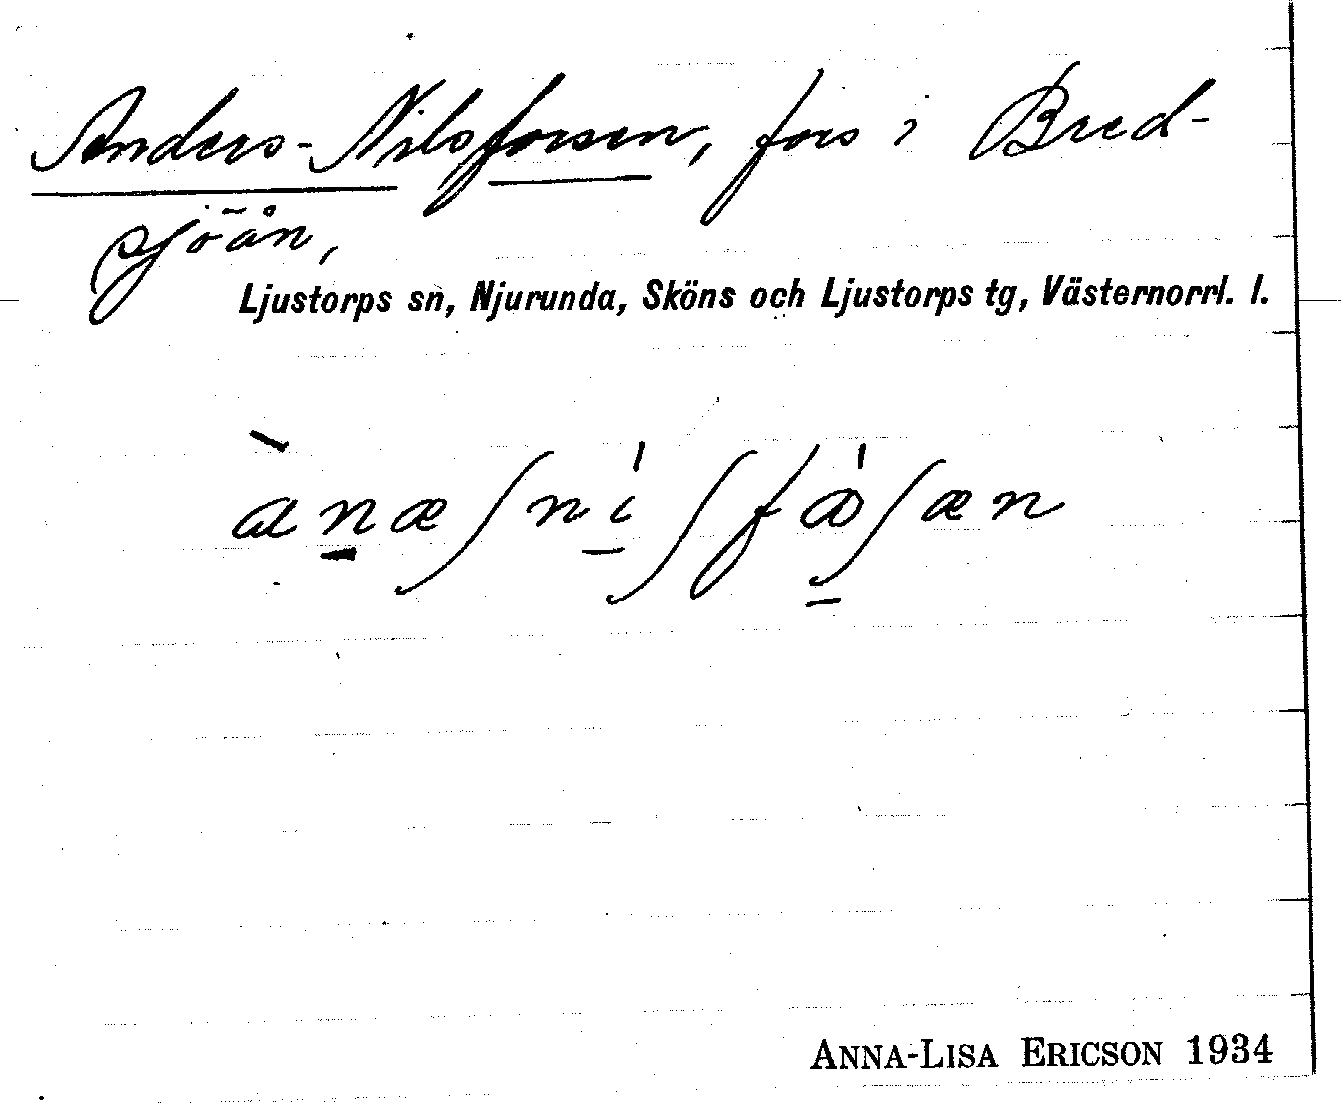 Anders-Nilsforsen, fors i Bred-
sjöån,
Ljustorps sn, Njurunda, Sköns och Ljustorps tg, Västernorrl. l.
ànæʃníʃfǻʃæn
ANNA-LISA ERICSON 1934